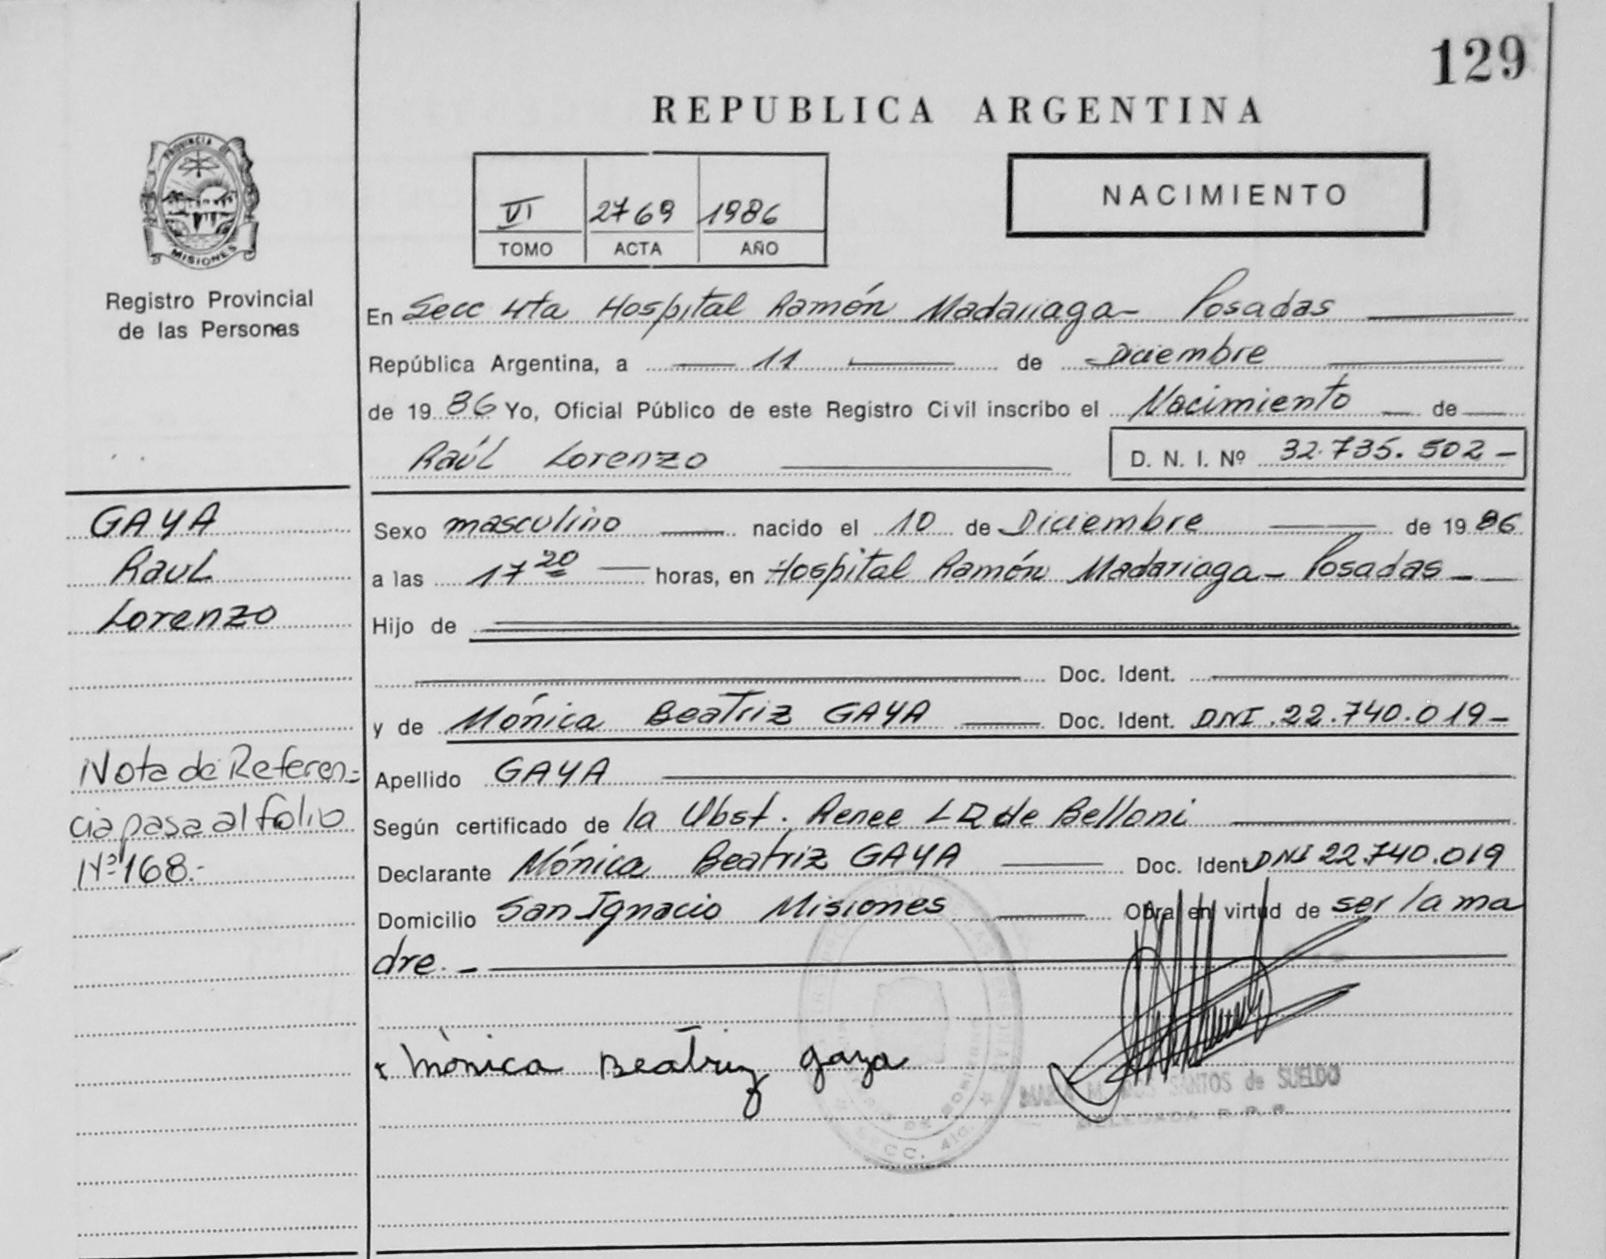 129
REPUBLICA ARGENTINA
PROVINCIA DE
MISIONES
Registro Provincial
de las Personas
VI 2769 1986
TOMO ACTA AÑO
NACIMIENTO
En Secc 4ta Hospital Ramón Madariaga - Posadas
República Argentina, a 11 de Diciembre
de 1986 Yo, Oficial Público de este Registro Civil inscribo el Nacimiento de
Raúl Lorenzo D. N. I. Nº 32.735.502-
GAYA
Raul
Lorenzo
Sexo masculino nacido el 10 de Diciembre de 1986
a las 17 20 horas, en Hospital Ramón Madariaga - Posadas
Hijo de
Doc. Ident.
y de Mónica Beatriz GAYA Doc. Ident. DNI. 22.740.019-
Nota de Referen-
cia pasa al folio
Nº 168.-
Apellido GAYA
Según certificado de la Obst. Renee L D de Belloni
Declarante Mónica Beatriz GAYA Doc. Ident DNI 22.740.019
Domicilio San Ignacio Misiones Obra en virtud de ser la ma
dre. -
Mónica Beatriz gaya
SANTOS de SUELDO
DELEGADA R.P.P.
SECC.